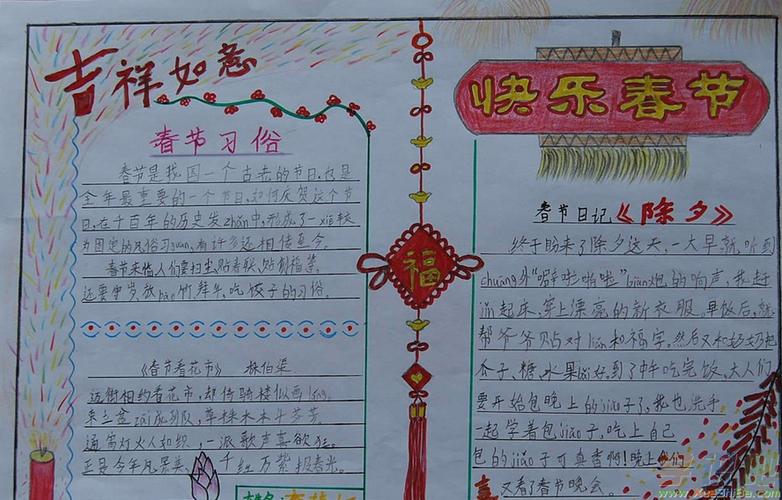 吉祥如意
春节习俗
春节是我国一个古老的节日,也是
全年最重要的一个节日,如何庆贺这个节
日,在千百年的历史发zhǎn中,形成了一xiē较
为固定的风俗习guàn,有许多还相传至今。
春节来临人们要扫尘贴春联,贴窗福,
还要守岁放bào竹,拜年,吃饺子的习俗。
《春节看花市》 林伯渠
迈街相约看花市,却倚骑楼似画lǎng。
束立盆zāi成列队,草株木本斗芬芳。
通宵灯火人如织,一派歌声喜欲狂。
正是今年风景美,千红万紫报春光。
福
快乐春节
春节日记《除夕》
终于盼来了除夕这天,一大早就听到
chuāng外“噼啦啪啦”biān炮的响声,我赶
jǐn起床,穿上漂亮的新衣服。早饭后,就
帮爷爷贴对lián和福字,然后又和奶奶把
瓜子、糖、水果
到了中午吃完饭,大人们
要开始包晚上的jiǎo子了,我也洗手
一起学着包jiǎo子,吃上自己
包的jiǎo子可真香啊!晚上我们
又看了春节晚会。